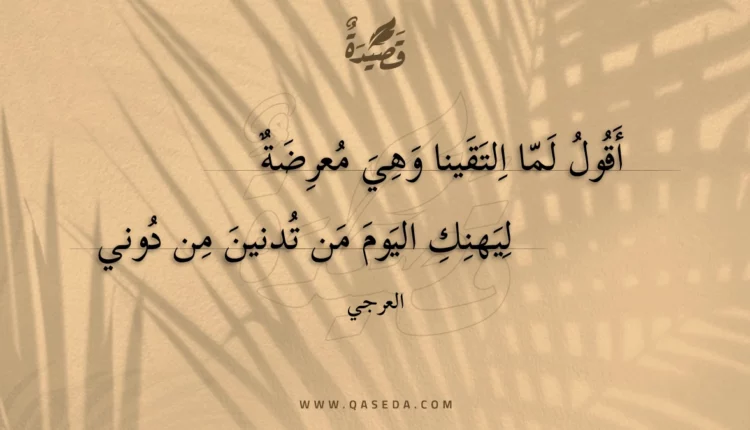 قَصِيْدَةٌ
أَقُولُ لَمّا اِلتَقَينا وَهِيَ مُعرِضَةٌ
لِيَهنِكِ اليَومَ مَن تُدنينَ مِن دُوني
العرجي
WWW.QASEDA.COM